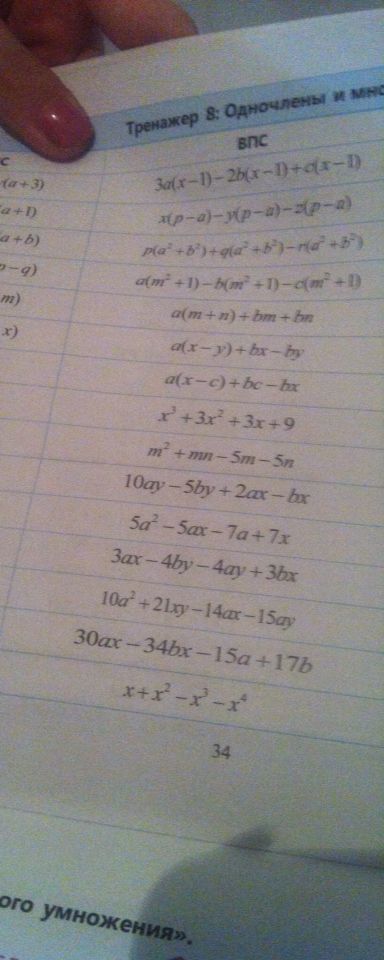 Тренажер 8: Одночлены и мно
С
ВПС
(a+3)
3a(x−1)−2b(x−1)+c(x−1)
a+1)
x(p−a)−y(p−a)−z(p−a)
a+b)
p(a²+b²)+q(a²+b²)−r(a²+b²)
p−q)
a(m²+1)−b(m²+1)−c(m²+1)
m)
a(m+n)+bm+bn
x)
a(x−y)+bx−by
a(x−c)+bc−bx
x³+3x²+3x+9
m²+mn−5m−5n
10ay−5by+2ax−bx
5a²−5ax−7a+7x
3ax−4by−4ay+3bx
10a²+21xy−14ax−15ay
30ax−34bx−15a+17b
x+x²−x³−x⁴
34
ого умножения».